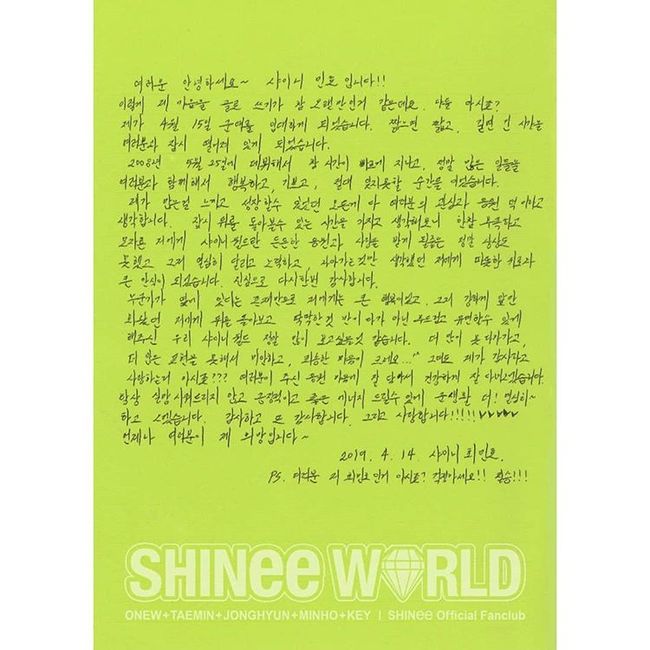 여러분 안녕하세요~ 샤이니 민호입니다!!
이렇게 제 마음을 글로 쓰기가 참 오랜만인거 같은데요. 다들 아시죠?
제가 4월 15일 군대를 입대하게 되었습니다. 짧으면 짧고, 길면 긴 시간을
여러분과 잠시 떨어져 있게 되었습니다.
2008년 5월 25일에 데뷔해서 참 시간이 빠르게 지나고, 정말 많은 일들을
여러분과 함께해서 행복하고, 기쁘고, 절대 잊지못할 순간을 얻었습니다.
제가 많은걸 느끼고 성장할수 있었던 모든게 다 여러분의 관심과 응원 덕이라고
생각합니다. 잠시 뒤를 돌아볼수 있는 시간을 가지고 생각해보니 한참 부족하고
모자른 저에게 샤이니월드란 든든한 응원과 사랑을 받게 될줄은 정말 상상도
못했고 그저 열심히 달리고 노력하고, 나아가는것만 생각했던 저에게 따뜻한 위로와
큰 안식이 되었습니다. 진심으로 다시한번 감사합니다.
누군가가 옆에 있다는 존재만으로 저에게는 큰 행복이었고, 그저 강하게 앞만
봐왔던 저에게 뒤를 돌아보고 딱딱한것 만이 아닌 부드럽고 유연할수 있게
해주신 우리 샤이니월드 정말 많이 보고싶을것 같습니다. 더 많이 못 다가가고,
더 많은 표현을 못해서 미안하고, 죄송한 마음이 크네요...^^ 그래도 제가 감사하고
사랑하는거 아시죠??? 여러분이 주신 응원 마음에 잘 담아서 건강하게 잘 다녀오겠습니다.
항상 실망시켜드리지 않고 긍정적이고 좋은 에너지 드릴수 있게 군생활 더! 열심히~
하고 오겠습니다. 감사하고 또 감사합니다. 그리고 사랑합니다!!!!!
언제나 여러분이 제 희망입니다~
2019. 4. 14. 샤이니 최민호.
PS. 여러분 저 최민호인거 아시죠? 걱정마세요!! 필승!!!
SHINee WORLD
ONEW+TAEMIN+JONGHYUN+MINHO+KEY | SHINee Official Fanclub